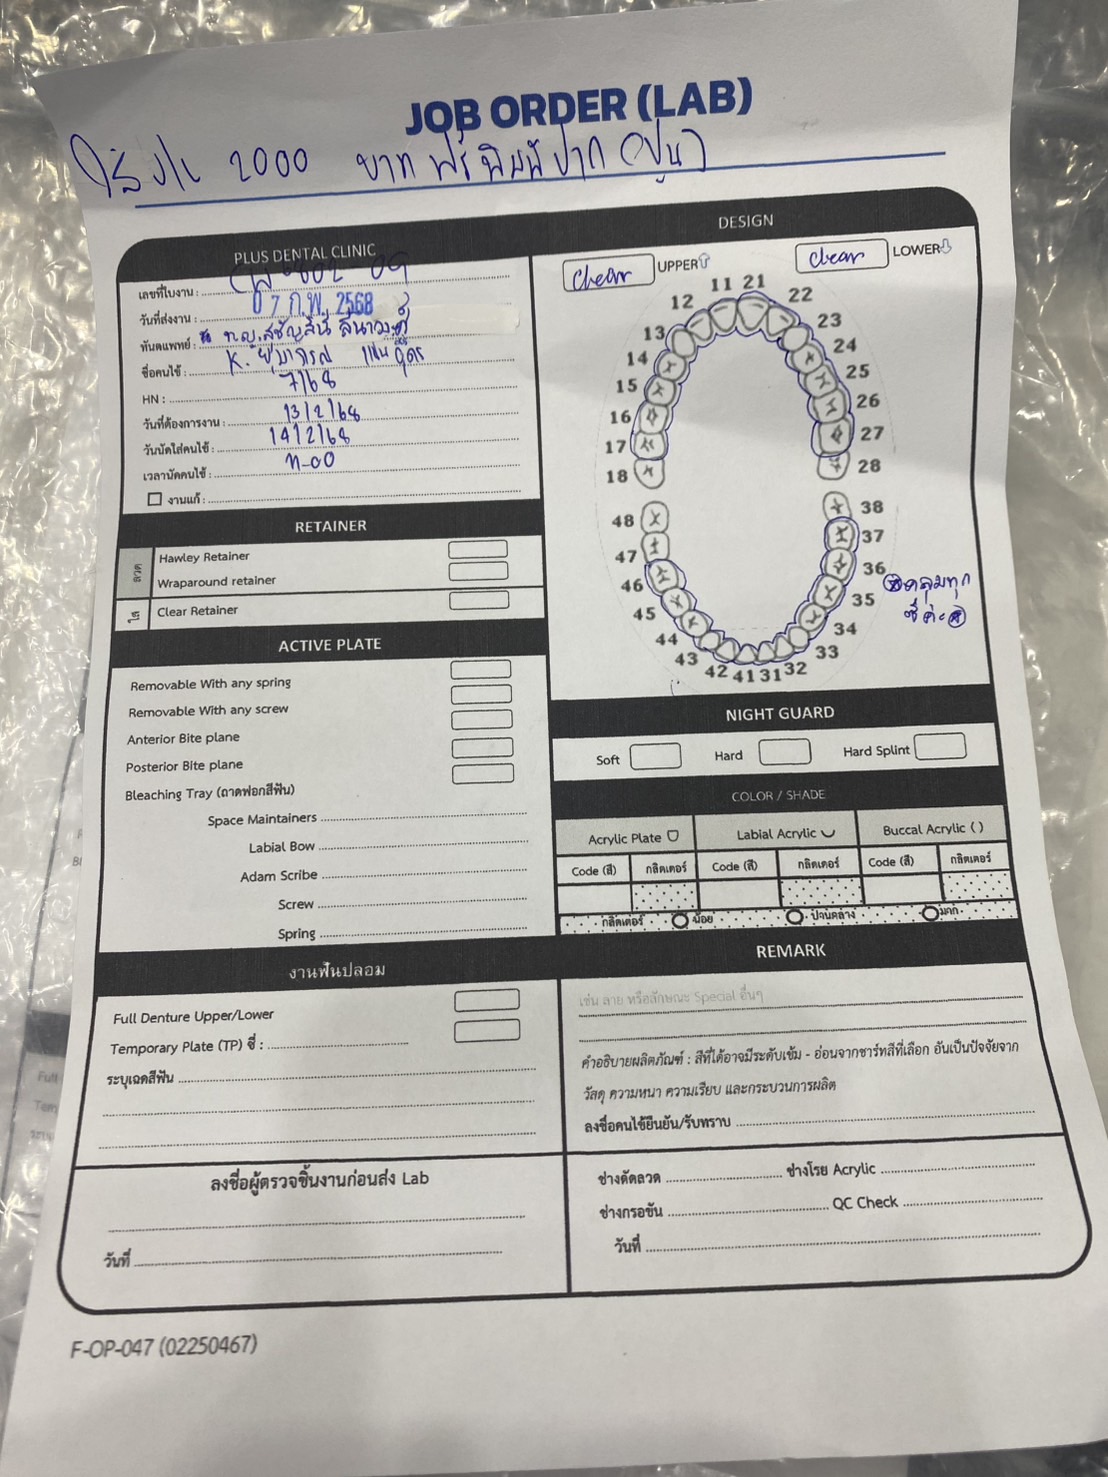 JOB ORDER (LAB)
2000 บาท ฟรีพิมพ์ปาก (ปูน)
PLUS DENTAL CLINIC
เลขที่ใบงาน :
วันที่ส่งงาน : 07 ก.พ. 2568
ทันตแพทย์ : ทญ.
ชื่อคนไข้ : K.
HN : 7168
วันที่ต้องการงาน : 13/2/68
วันนัดใส่คนไข้ : 14/2/68
เวลานัดคนไข้ :
งานแก้ :
RETAINER
ลวด
Hawley Retainer
Wraparound retainer
ใส
Clear Retainer
ACTIVE PLATE
Removable With any spring
Removable With any screw
Anterior Bite plane
Posterior Bite plane
Bleaching Tray (ถาดฟอกสีฟัน)
Space Maintainers
Labial Bow
Adam Scribe
Screw
Spring
งานฟันปลอม
Full Denture Upper/Lower
Temporary Plate (TP) ซี่ :
ระบุเฉดสีฟัน
ลงชื่อผู้ตรวจชิ้นงานก่อนส่ง Lab
วันที่
DESIGN
Clear UPPER Clear LOWER
11 21
12 22
13 23
14 24
15 25
16 26
17 27
18 28
48 38
47 37
46 36
45 35
44 34
43 33
42 41 31 32
คลุมทุก
ซี่ค่ะ
NIGHT GUARD
Soft Hard Hard Splint
COLOR / SHADE
Acrylic Plate Labial Acrylic Buccal Acrylic ( )
Code (สี) กลิตเตอร์ Code (สี) กลิตเตอร์ Code (สี) กลิตเตอร์
กลิตเตอร์ น้อย ปานกลาง มาก
REMARK
เช่น ลาย หรือลักษณะ Special อื่นๆ
คำอธิบายผลิตภัณฑ์ : สีที่ได้อาจมีระดับเข้ม - อ่อนจากชาร์ทสีที่เลือก อันเป็นปัจจัยจาก
วัสดุ ความหนา ความเรียบ และกระบวนการผลิต
ลงชื่อคนไข้ยืนยัน/รับทราบ
ช่างดัดลวด ช่างโรย Acrylic
ช่างกรอขัน QC Check
วันที่
F-OP-047 (02250467)